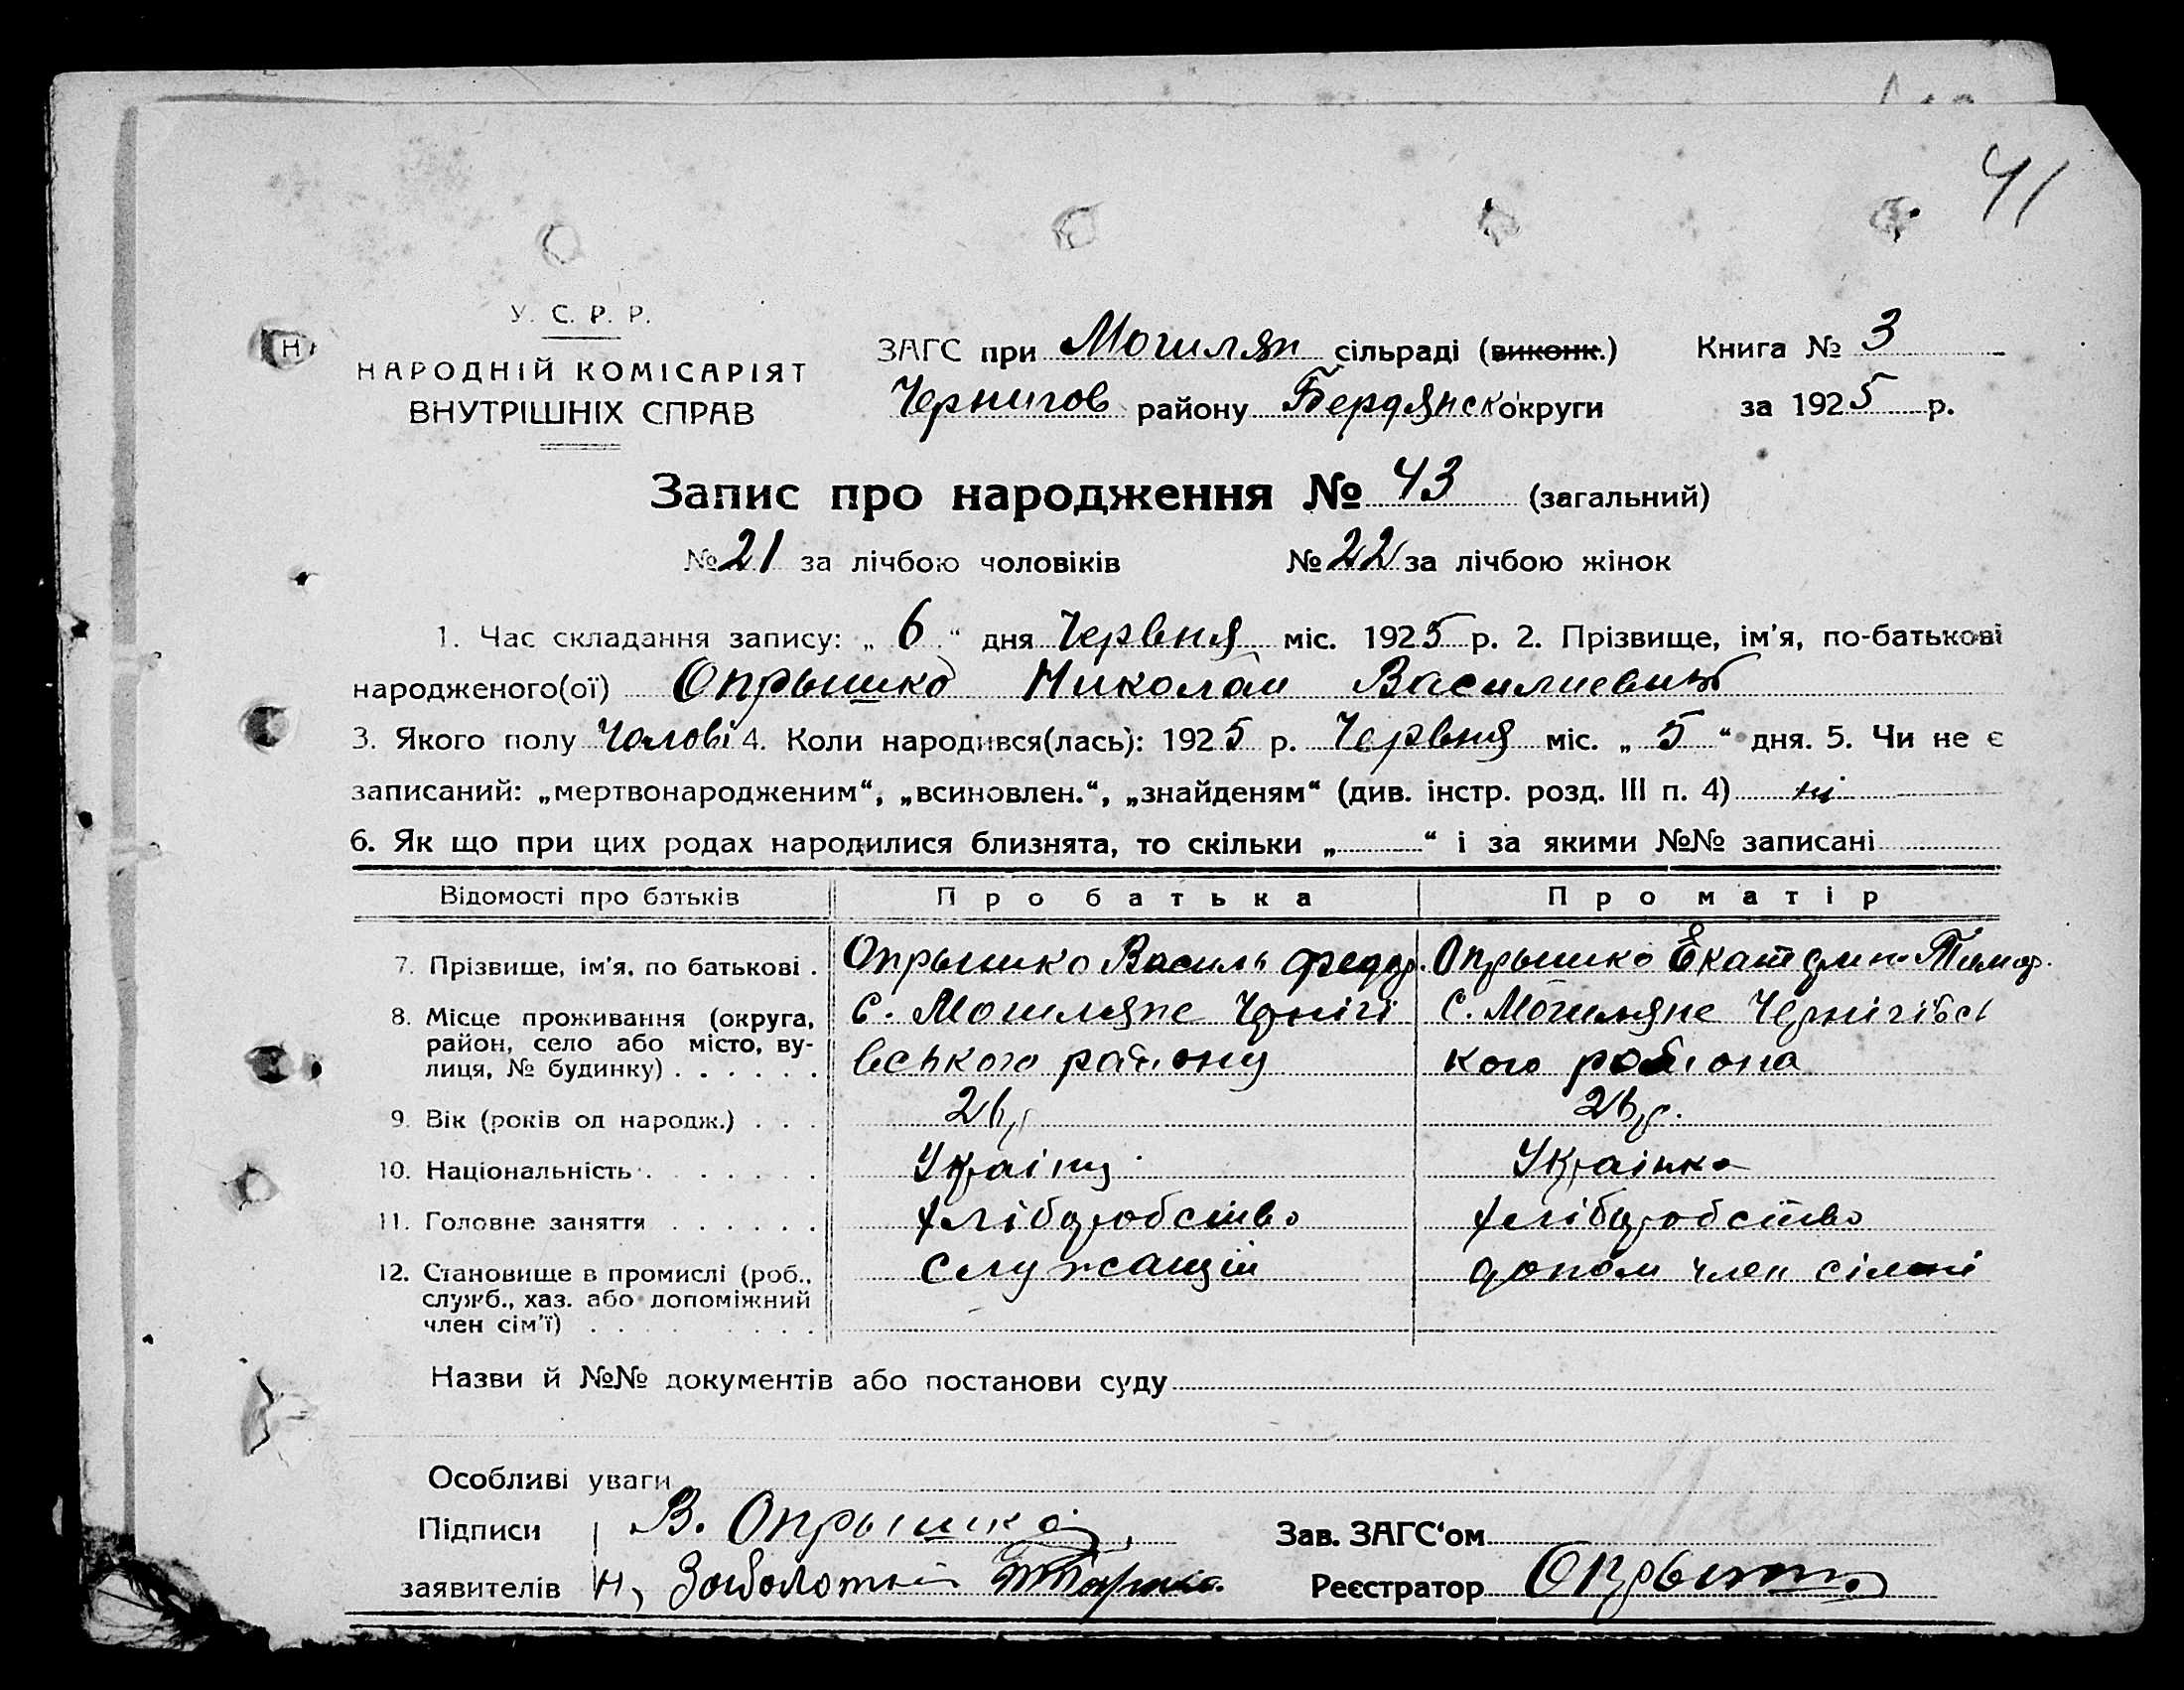 41
У. С. Р. Р.
НАРОДНІЙ КОМІСАРІЯТ
ВНУТРІШНІХ СПРАВ
ЗАГС при Могилян сільраді (виконк.)
Чернигов району Бердянск округи
Книга № 3
за 1925 р.
Запис про народження № 43 (загальний)
№ 21 за лічбою чоловіків № 22 за лічбою жінок
1. Час складання запису: „ 6 “ дня Червня міс. 1925 р. 2. Прізвище, ім'я, по-батькові
народженого(ої) Опрышко Николай Василиевич
3. Якого полу Чолові 4. Коли народився(лась): 1925 р. Червня міс. „ 5 “ дня. 5. Чи не є
записаний: „мертвонародженим“, „всиновлен.“, „знайденям“ (див. інстр. розд. III п. 4) ні
6. Як що при цих родах народилися близнята, то скільки „ “ і за якими №№ записані
Відомості про батьків Про батька Про матір
7. Прізвище, ім'я, по батькові . Опрышко Василь Федор. Опрышко Екатерина Тимоф.
8. Місце проживання (округа, район, село або місто, вулиця, № будинку) . . . . . . С. Могиляне Чернігі С. Могиляне Чернігівсь
вського району кого района
9. Вік (років од народж.) . . . 26 р 26 р.
10. Національність . . . . . . Украінец Украінка
11. Головне заняття . . . . . . хліборобство хліборобство
12. Становище в промислі (роб., служб., хаз. або допоміжний член сім'ї) . . . . . . . служащий допом член сімні
Назви й №№ документів або постанови суду
Особливі уваги
Підписи В. Опрышко Зав. ЗАГС‘ом
заявителів Н, Заболотній Реєстратор Опрышко